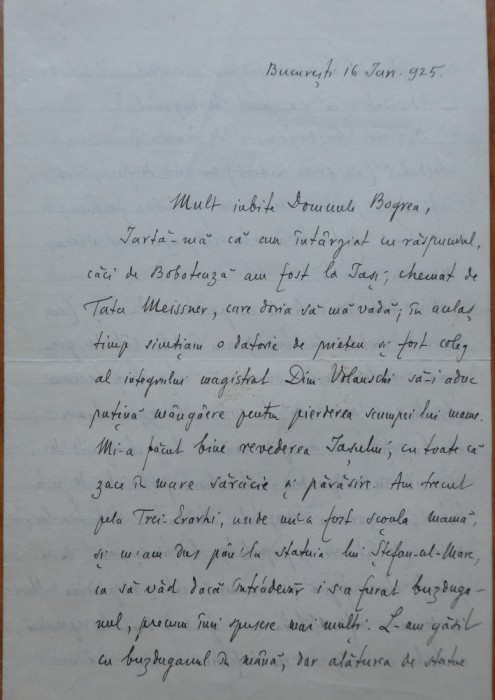 București 16 Ian. 925.
Mult iubite Domnule Bogrea,
Iartă-mă că am întârgiat cu răspunsul,
căci de Bobotează am fost la Iași, chemat de
Tatu Meissner, care doria să mă vadă; în acelaș
timp simțiam o datorie de prieten și fost coleg
al integrului magistrat Dim. Volanschi să-i aduc
puțină mângâere pentru pierderea scumpei lui mame.
Mi-a făcut bine revederea Iașului, cu toate că
zace în mare sărăcie și părăsire. Am trecut
pela Trei-Erarhi, unde mi-a fost școala mamă,
și m'am dus păn'la statuia lui Ștefan-cel-Mare,
ca să văd dacă întrădevăr i s'a furat buzduga-
nul, precum îmi spusere mai mulți. L-am găsit
cu buzduganul în mână, dar alăturea de statue